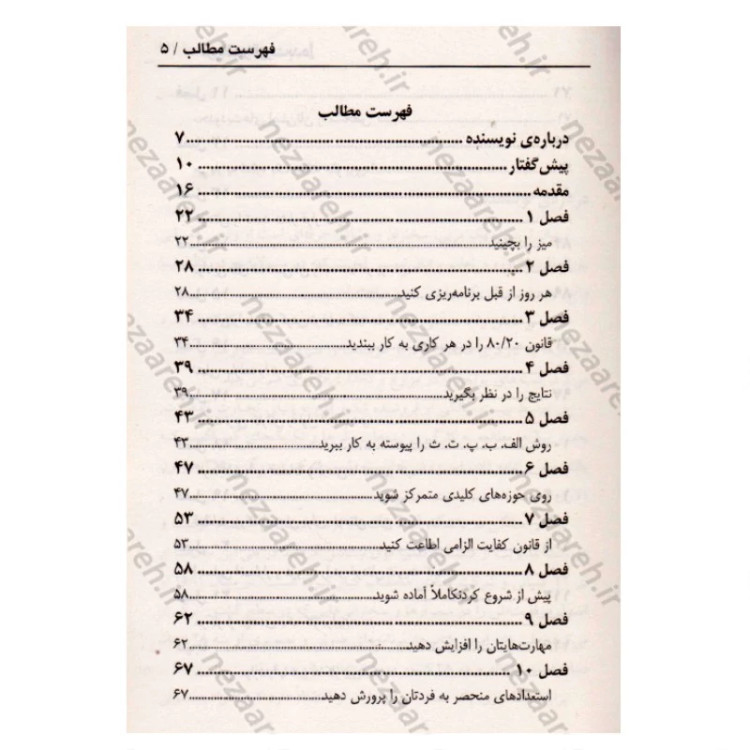 فهرست مطالب / ۵
فهرست مطالب
درباره‌ی نویسنده ........ ۷
پیش‌گفتار ........ ۱۰
مقدمه ........ ۱۶
فصل ۱ ........ ۲۲
میز را بچینید ........ ۲۲
فصل ۲ ........ ۲۸
هر روز از قبل برنامه‌ریزی کنید ........ ۲۸
فصل ۳ ........ ۳۴
قانون ۸۰/۲۰ را در هر کاری به کار ببندید ........ ۳۴
فصل ۴ ........ ۳۹
نتایج را در نظر بگیرید ........ ۳۹
فصل ۵ ........ ۴۳
روش الف. ب. پ. ت. ث را پیوسته به کار ببرید ........ ۴۳
فصل ۶ ........ ۴۷
روی حوزه‌های کلیدی متمرکز شوید ........ ۴۷
فصل ۷ ........ ۵۳
از قانون کفایت الزامی اطاعت کنید ........ ۵۳
فصل ۸ ........ ۵۸
پیش از شروع کردنکاملاً آماده شوید ........ ۵۸
فصل ۹ ........ ۶۲
مهارت‌هایتان را افزایش دهید ........ ۶۲
فصل ۱۰ ........ ۶۷
استعدادهای منحصر به فردتان را پرورش دهید ........ ۶۷
nezaareh.ir